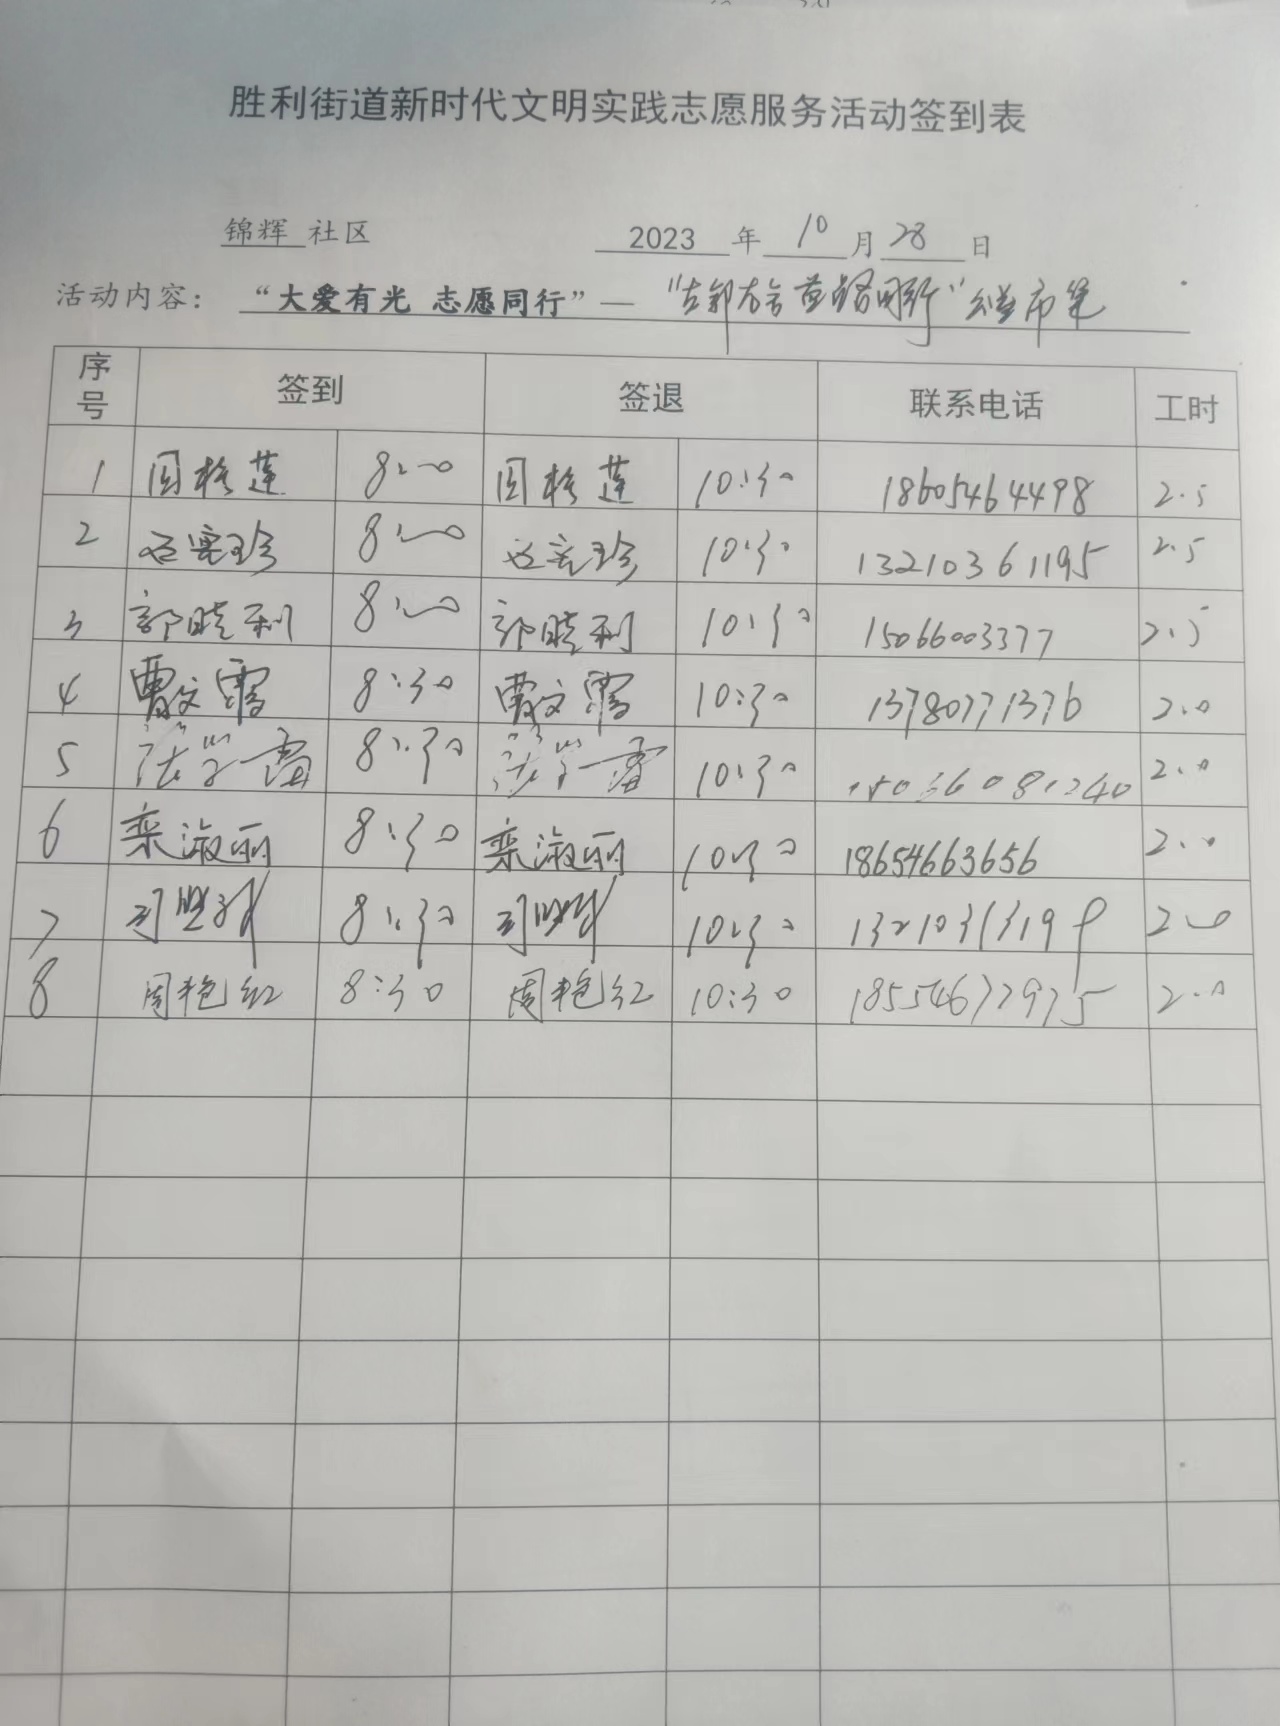 胜利街道新时代文明实践志愿服务活动签到表
锦辉 社区 2023 年 10 月 28 日
活动内容：“大爱有光 志愿同行”— “ ” 公益市集
序号 签到 签退 联系电话 工时
1 桂莲 8:00 桂莲 10:30 18605464498 2.5
2 珍 8:00 珍 10:30 13210361195 2.5
3 郭晓利 8:00 郭晓利 10:30 15066003377 2.5
4 曹文霞 8:30 曹文霞 10:30 13780771376 2.0
5 8:30 10:30 2.0
6 栾淑丽 8:30 栾淑丽 10:30 18654663656 2.0
7 司 8:30 司 10:30 2.0
8 周艳红 8:30 周艳红 10:30 18554677975 2.0